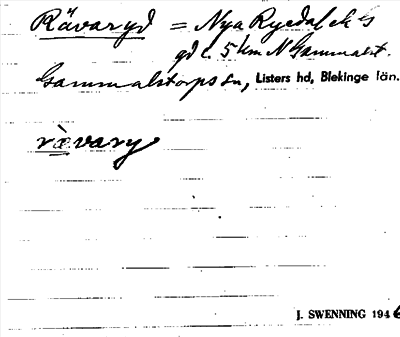 Rävaryd = Nya Rycdal ek's
gd c. 5 km N Gammalst.
Gammalstorps sn, Listers hd, Blekinge län.
rævary
J. SWENNING 1946